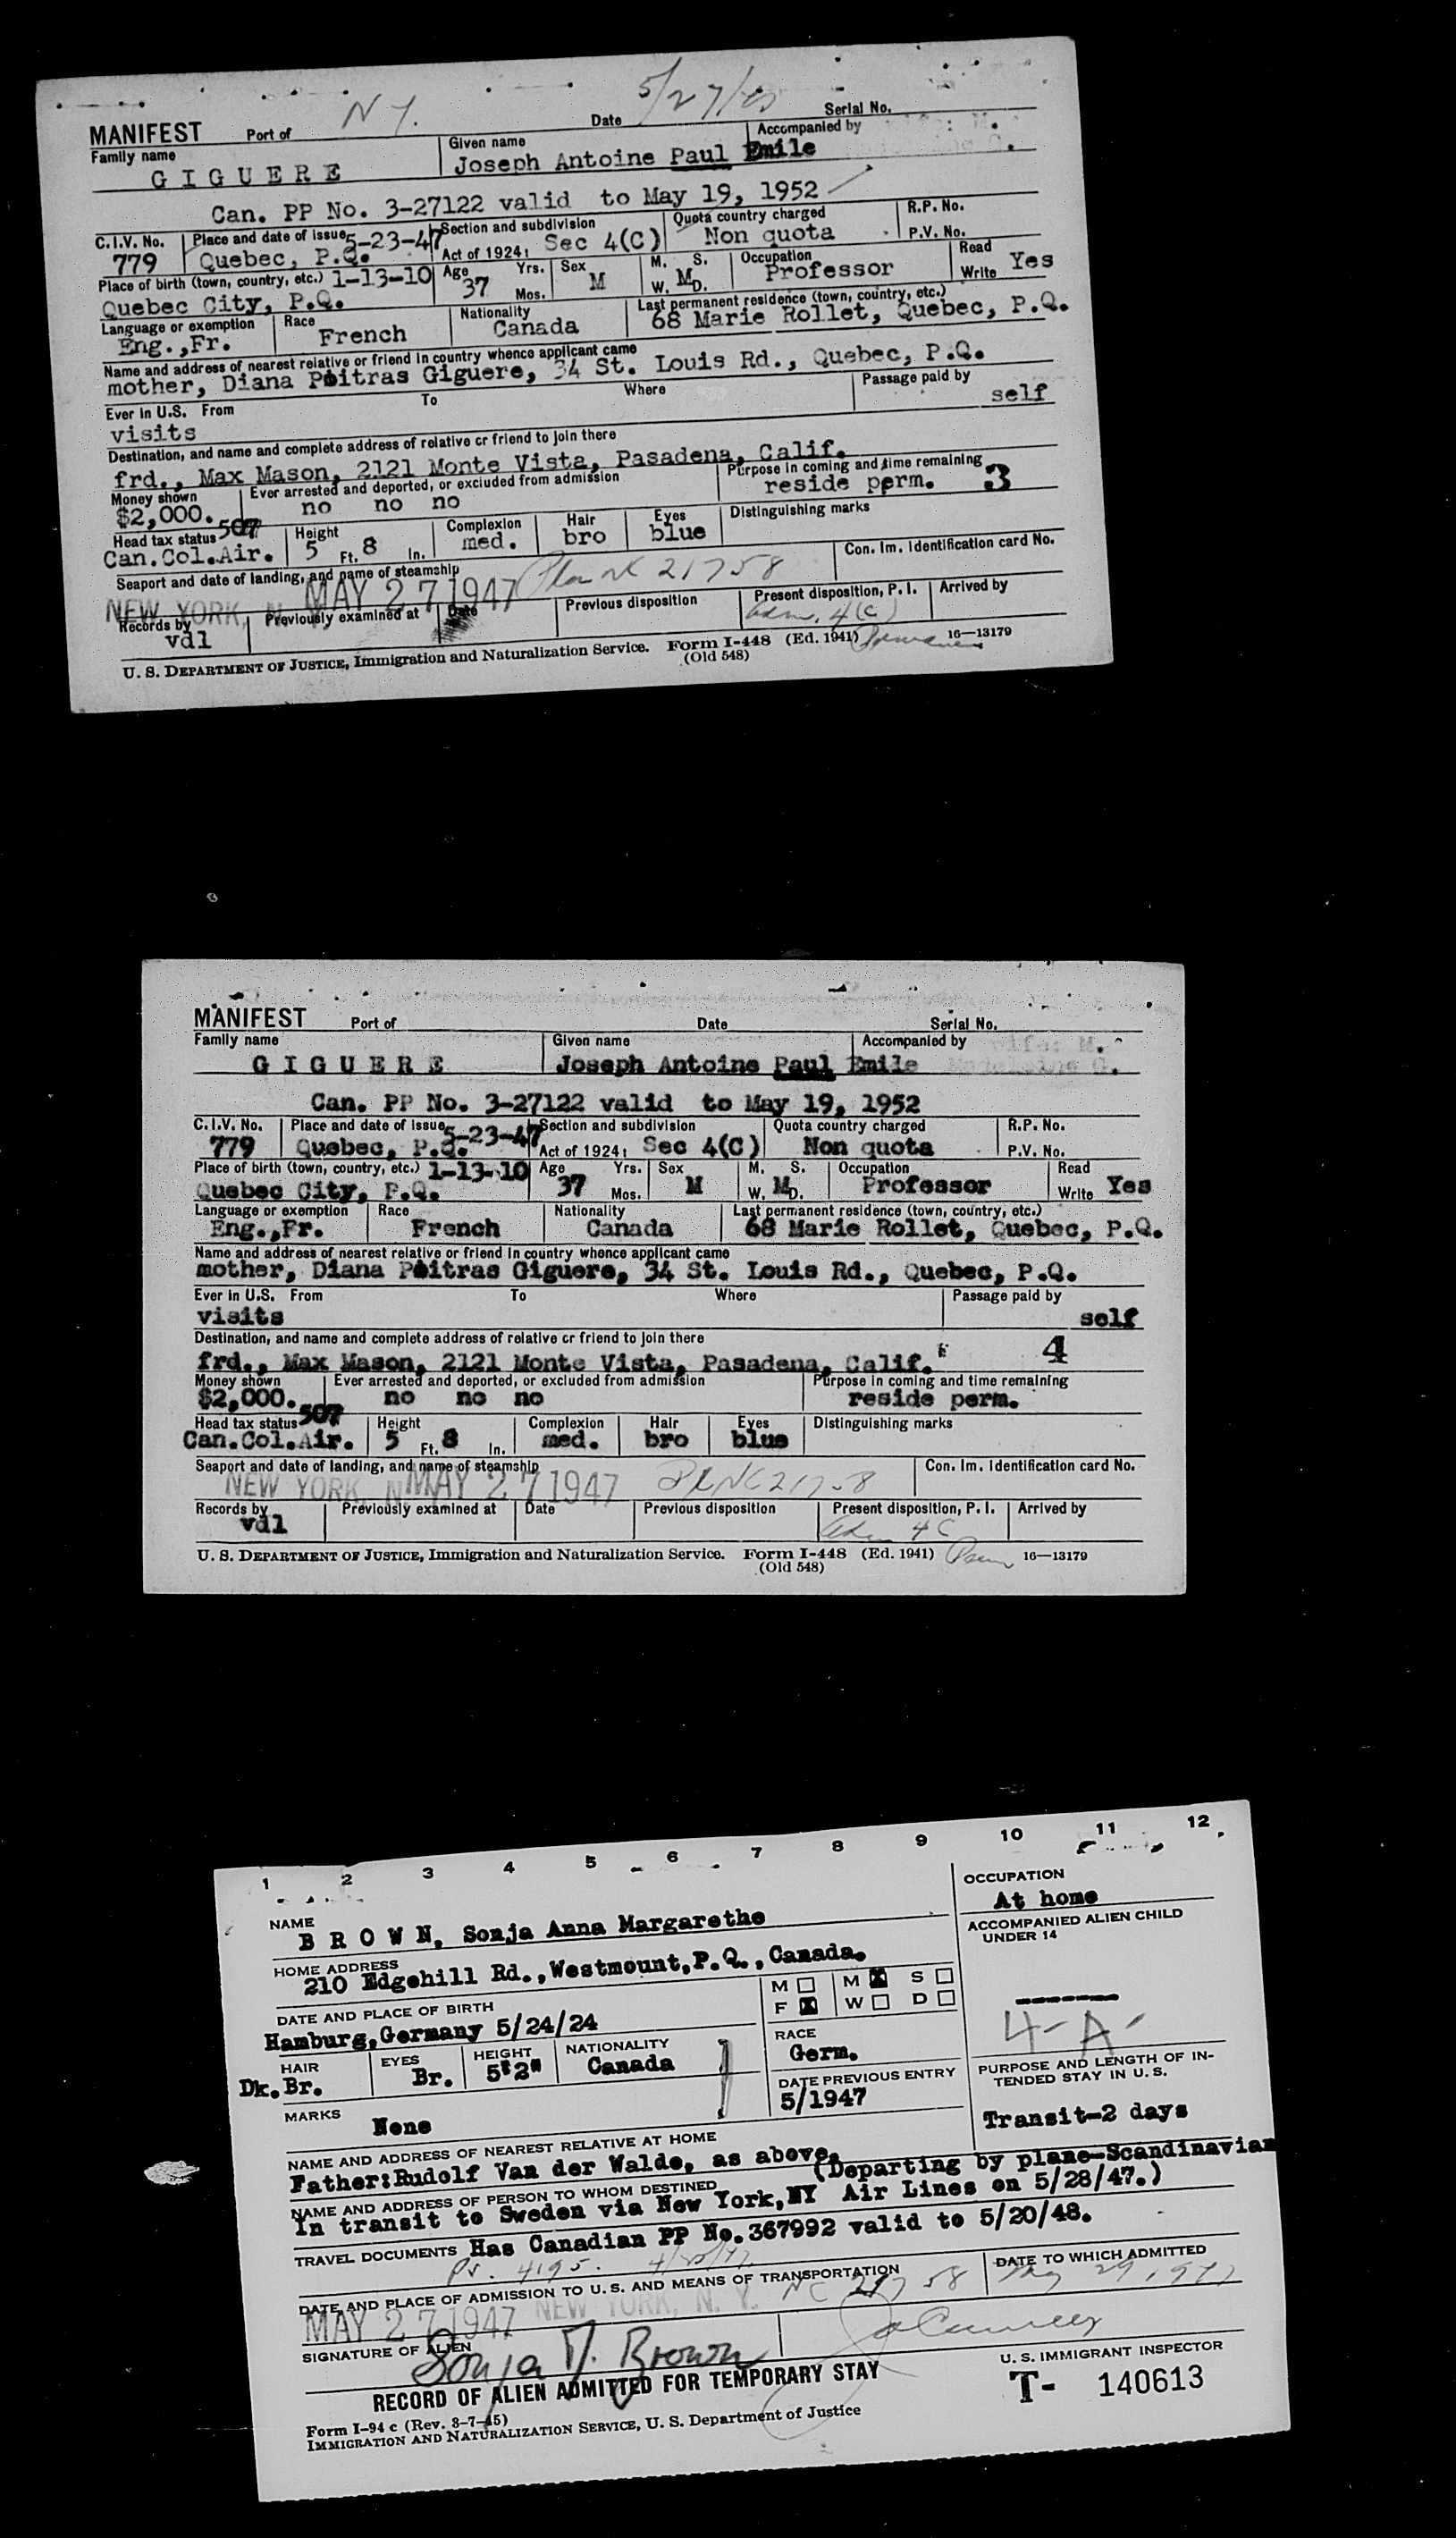 N Y. 5/27/47
MANIFEST Port of Date Serial No.
Family name Given name Accompanied by
GIGUERE Joseph Antoine Paul Emile
Can. PP No. 3-27122 valid to May 19, 1952
C.I.V. No. Place and date of issue 5-23-47 Section and subdivision Quota country charged R.P. No.
779 Quebec, P.Q. Act of 1924: Sec 4(C) Non quota P.V. No.
Place of birth (town, country, etc.) 1-13-10 Age Yrs. Sex M. S. Occupation Read
Quebec City, P.Q. 37 Mos. M W. M D. Professor Write Yes
Language or exemption Race Nationality Last permanent residence (town, country, etc.)
Eng.,Fr. French Canada 68 Marie Rollet, Quebec, P.Q.
Name and address of nearest relative or friend in country whence applicant came
mother, Diana Poitras Giguere, 34 St. Louis Rd., Quebec, P.Q.
Ever in U.S. From To Where Passage paid by
visits self
Destination, and name and complete address of relative or friend to join there
frd., Max Mason, 2121 Monte Vista, Pasadena, Calif.
Money shown Ever arrested and deported, or excluded from admission Purpose in coming and time remaining
$2,000. no no no reside perm. 3
Head tax status 507 Height Complexion Hair Eyes Distinguishing marks
Can.Col.Air. 5 Ft. 8 In. med. bro blue
Seaport and date of landing, and name of steamship Con. Im. Identification card No.
NEW YORK, N. MAY 27 1947 Plane NC 21758
Records by Previously examined at Date Previous disposition Present disposition, P. I. Arrived by
vdl Adm. 4(C)
U. S. DEPARTMENT OF JUSTICE, Immigration and Naturalization Service. Form I-448 (Ed. 1941) 16—13179
(Old 548)
MANIFEST Port of Date Serial No.
Family name Given name Accompanied by wife: M.
GIGUERE Joseph Antoine Paul Emile Madeleine G.
Can. PP No. 3-27122 valid to May 19, 1952
C.I.V. No. Place and date of issue 5-23-47 Section and subdivision Quota country charged R.P. No.
779 Quebec, P.Q. Act of 1924: Sec 4(C) Non quota P.V. No.
Place of birth (town, country, etc.) 1-13-10 Age Yrs. Sex M. S. Occupation Read
Quebec City, P.Q. 37 Mos. M W. M D. Professor Write Yes
Language or exemption Race Nationality Last permanent residence (town, country, etc.)
Eng.,Fr. French Canada 68 Marie Rollet, Quebec, P.Q.
Name and address of nearest relative or friend in country whence applicant came
mother, Diana Poitras Giguere, 34 St. Louis Rd., Quebec, P.Q.
Ever in U.S. From To Where Passage paid by
visits self
Destination, and name and complete address of relative or friend to join there
frd., Max Mason, 2121 Monte Vista, Pasadena, Calif. 4
Money shown Ever arrested and deported, or excluded from admission Purpose in coming and time remaining
$2,000. no no no reside perm.
Head tax status 507 Height Complexion Hair Eyes Distinguishing marks
Can.Col.Air. 5 Ft. 8 In. med. bro blue
Seaport and date of landing, and name of steamship Con. Im. Identification card No.
NEW YORK, N MAY 27 1947 NC 21758
Records by Previously examined at Date Previous disposition Present disposition, P. I. Arrived by
vdl Adm 4C
U. S. DEPARTMENT OF JUSTICE, Immigration and Naturalization Service. Form I-448 (Ed. 1941) Perm 16—13179
(Old 548)
1 2 3 4 5 6 7 8 9 10 11 12
OCCUPATION
At home
NAME
BROWN, Sonja Anna Margarethe
ACCOMPANIED ALIEN CHILD
UNDER 14
HOME ADDRESS
210 Edgehill Rd.,Westmount,P.Q.,Canada.
DATE AND PLACE OF BIRTH M M X S
Hamburg,Germany 5/24/24 F X W D
4-A-
HAIR EYES HEIGHT NATIONALITY RACE
Dk.Br. Br. 5'2" Canada Germ.
PURPOSE AND LENGTH OF IN-
TENDED STAY IN U. S.
MARKS DATE PREVIOUS ENTRY
None 5/1947
Transit-2 days
NAME AND ADDRESS OF NEAREST RELATIVE AT HOME
Father:Rudolf Van der Walde, as above.
(Departing by plane-Scandinavian
NAME AND ADDRESS OF PERSON TO WHOM DESTINED
In transit to Sweden via New York,NY Air Lines on 5/28/47.)
TRAVEL DOCUMENTS Has Canadian PP No.367992 valid to 5/20/48.
DATE AND PLACE OF ADMISSION TO U. S. AND MEANS OF TRANSPORTATION DATE TO WHICH ADMITTED
MAY 27 1947 NEW YORK, N. Y. NC 21758 May 29, 1947
SIGNATURE OF ALIEN
Sonja M. Brown
U. S. IMMIGRANT INSPECTOR
RECORD OF ALIEN ADMITTED FOR TEMPORARY STAY
T- 140613
Form I-94 c (Rev. 3-7-45)
IMMIGRATION AND NATURALIZATION SERVICE, U. S. Department of Justice